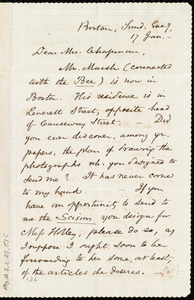 Boston, Sund. Eve'g,
17 Jan.—
Dear Mrs. Chapman,
Mr. Marsh (connected
with the Bee) is now in
Boston. His residence is in
Leverett Street, opposite head
of Causeway Street.— Did
you ever discover, among yr.
papers, the plan of
photographs wh. you designed to
send me? It has never come
to my hand. If you
have an opportunity to send to
me the Scissors, you design for
Miss Holley, please do so, as
I suppose I ought soon to be
forwarding to her some, at least,
of the articles she desires.